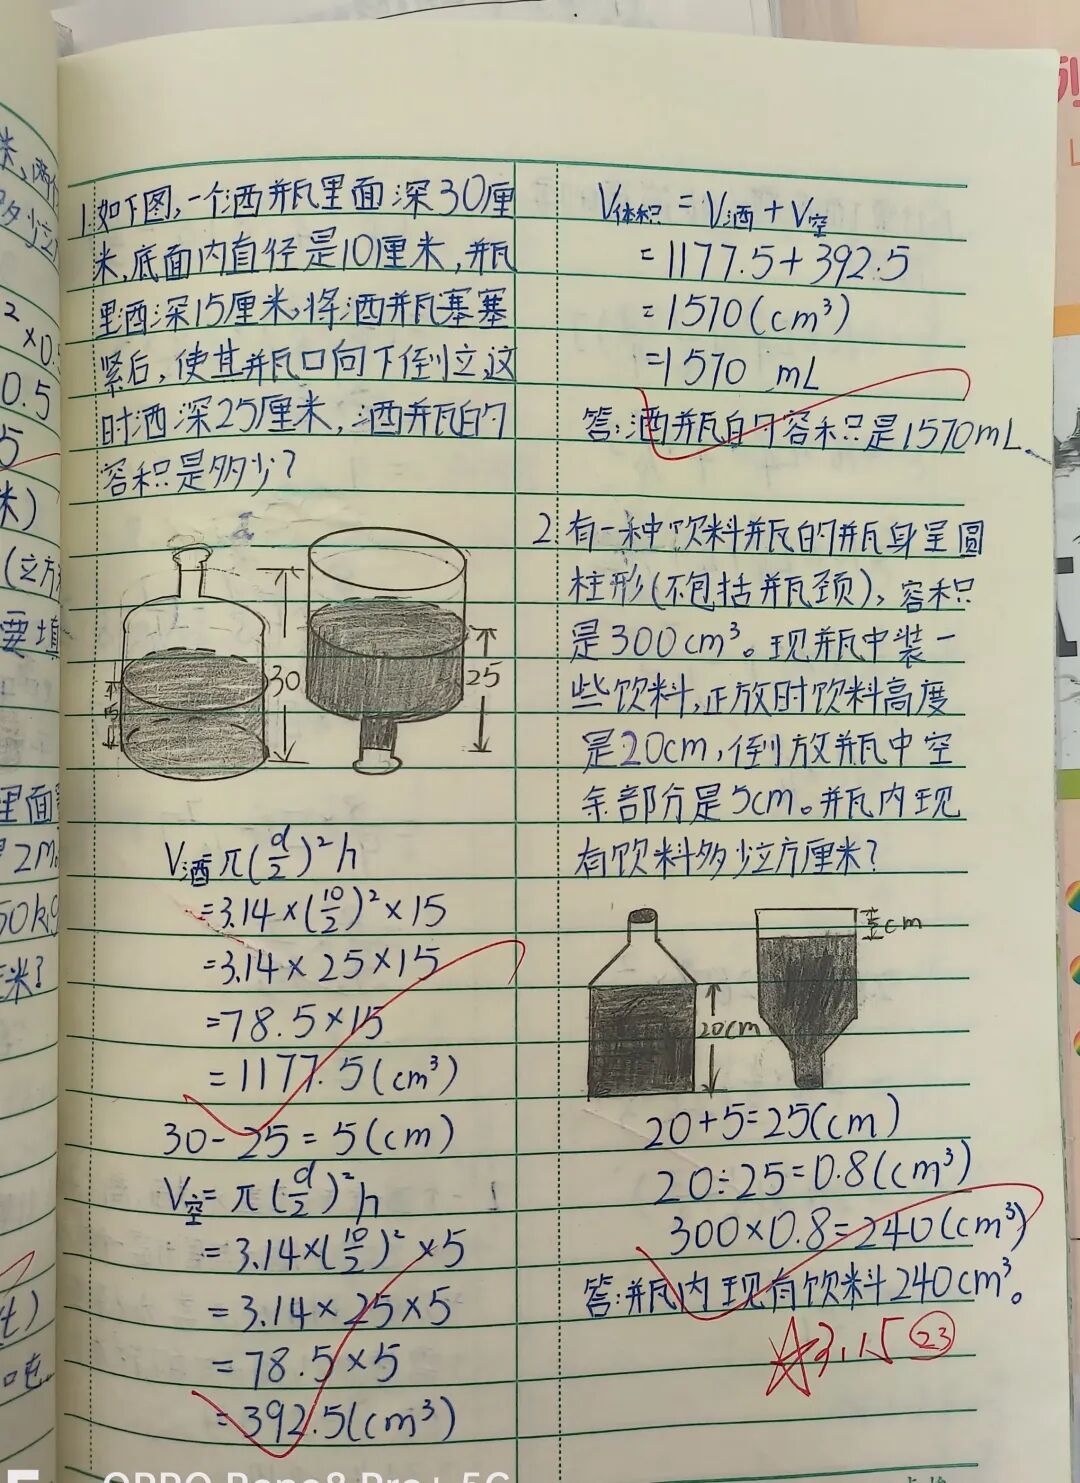 1.如下图,一个酒瓶里面深30厘
米,底面内直径是10厘米,瓶
里酒深15厘米,将酒瓶塞塞
紧后,使其瓶口向下倒立这
时酒深25厘米,酒瓶的
容积是多少?
30
25
15
V酒 π(d/2)²h
=3.14×(10/2)²×15
=3.14×25×15
=78.5×15
=1177.5(cm³)
30-25=5(cm)
V空=π(d/2)²h
=3.14×(10/2)²×5
=3.14×25×5
=78.5×5
=392.5(cm³)
V体积=V酒+V空
=1177.5+392.5
=1570(cm³)
=1570 mL
答:酒瓶的容积是1570mL.
2.有一种饮料瓶的瓶身呈圆
柱形(不包括瓶颈),容积
是300cm³。现瓶中装一
些饮料,正放时饮料高度
是20cm,倒放瓶中空
余部分是5cm。瓶内现
有饮料多少立方厘米?
cm
20cm
20+5=25(cm)
20÷25=0.8(cm³)
300×0.8=240(cm³)
答:瓶内现有饮料240cm³。
3.15 23